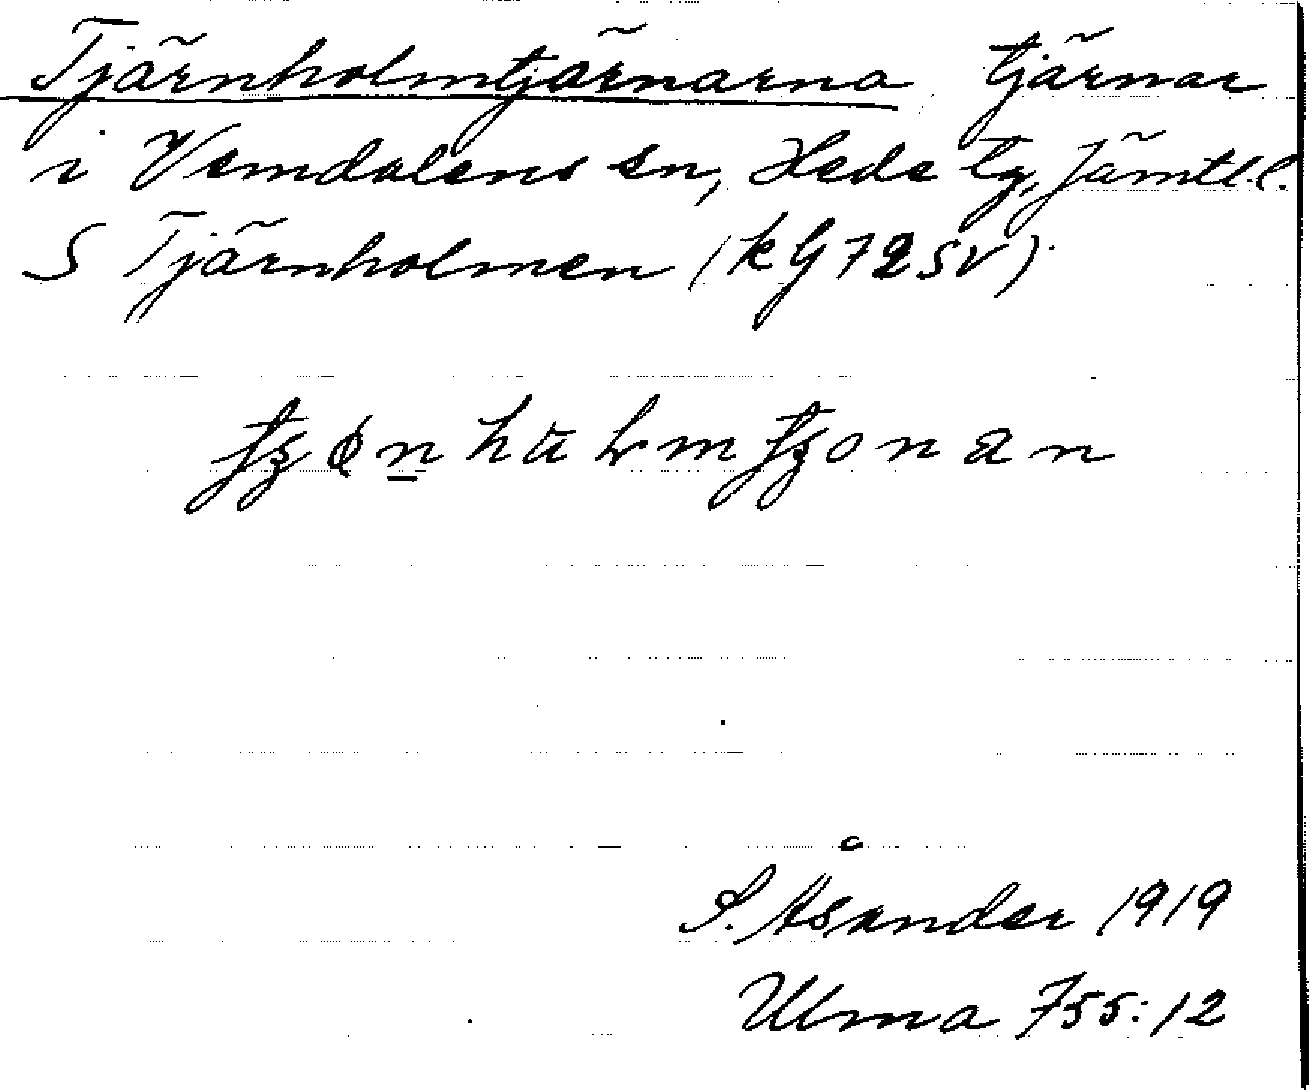 Tjärnholmtjärnarna tjärnar
i Vemdalens sn, Hede tg, Jämtl. l.
S Tjärnholmen (kG 72 SV)
S. Åsander 1919
Ulma 755:12